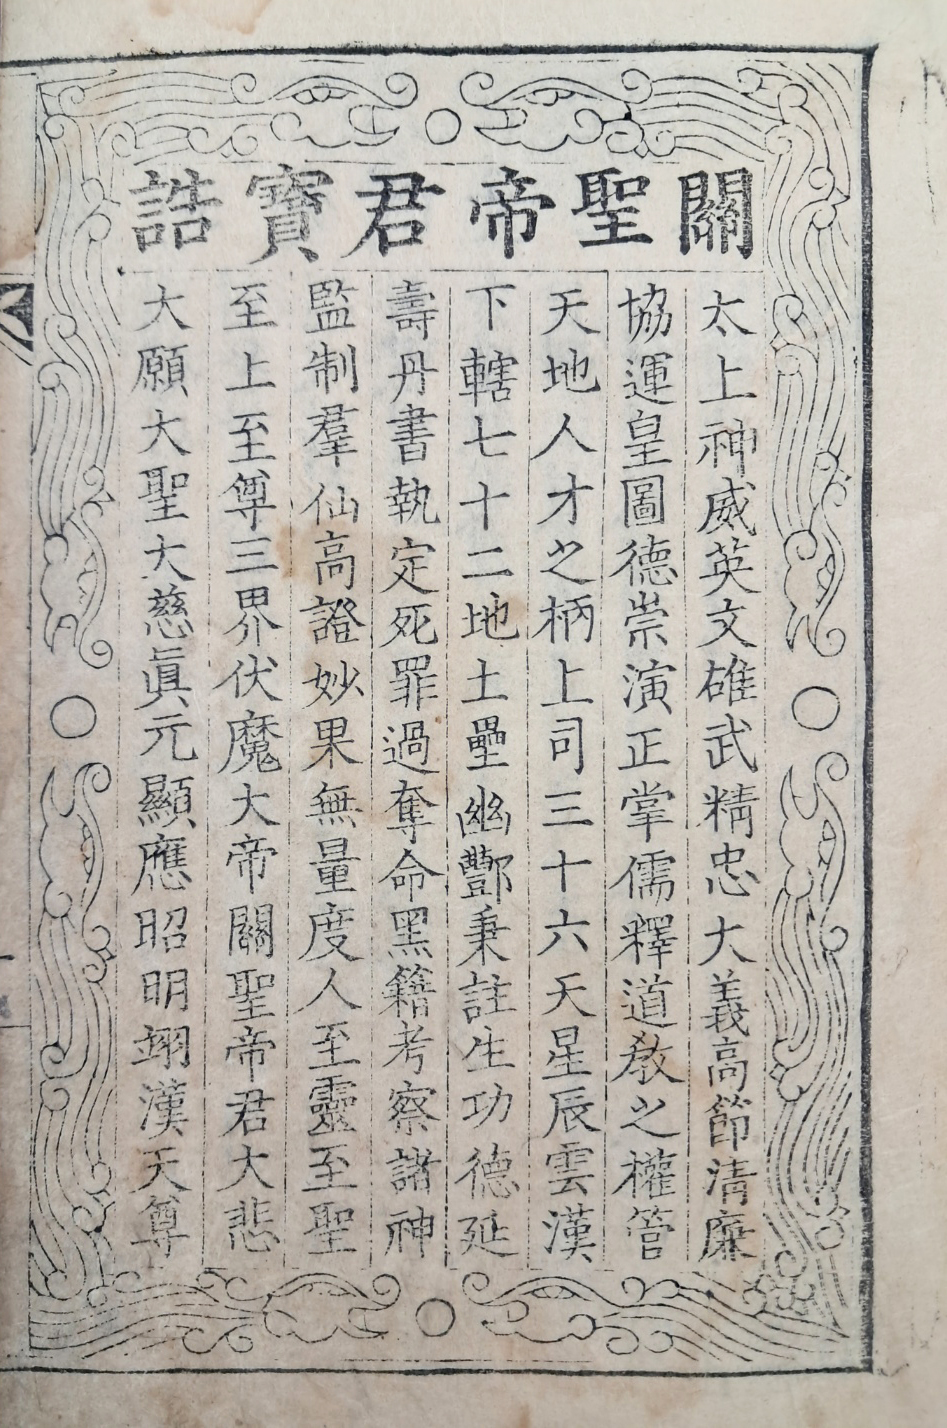 關聖帝君寶誥
太上神威英文雄武精忠大義高節清廉
協運皇圖德崇演正掌儒釋道教之權管
天地人才之柄上司三十六天星辰雲漢
下轄七十二地土壘幽酆秉註生功德延
壽丹書執定死罪過奪命黑籍考察諸神
監制羣仙高證妙果無量度人至靈至聖
至上至尊三界伏魔大帝關聖帝君大悲
大願大聖大慈眞元顯應昭明翊漢天尊